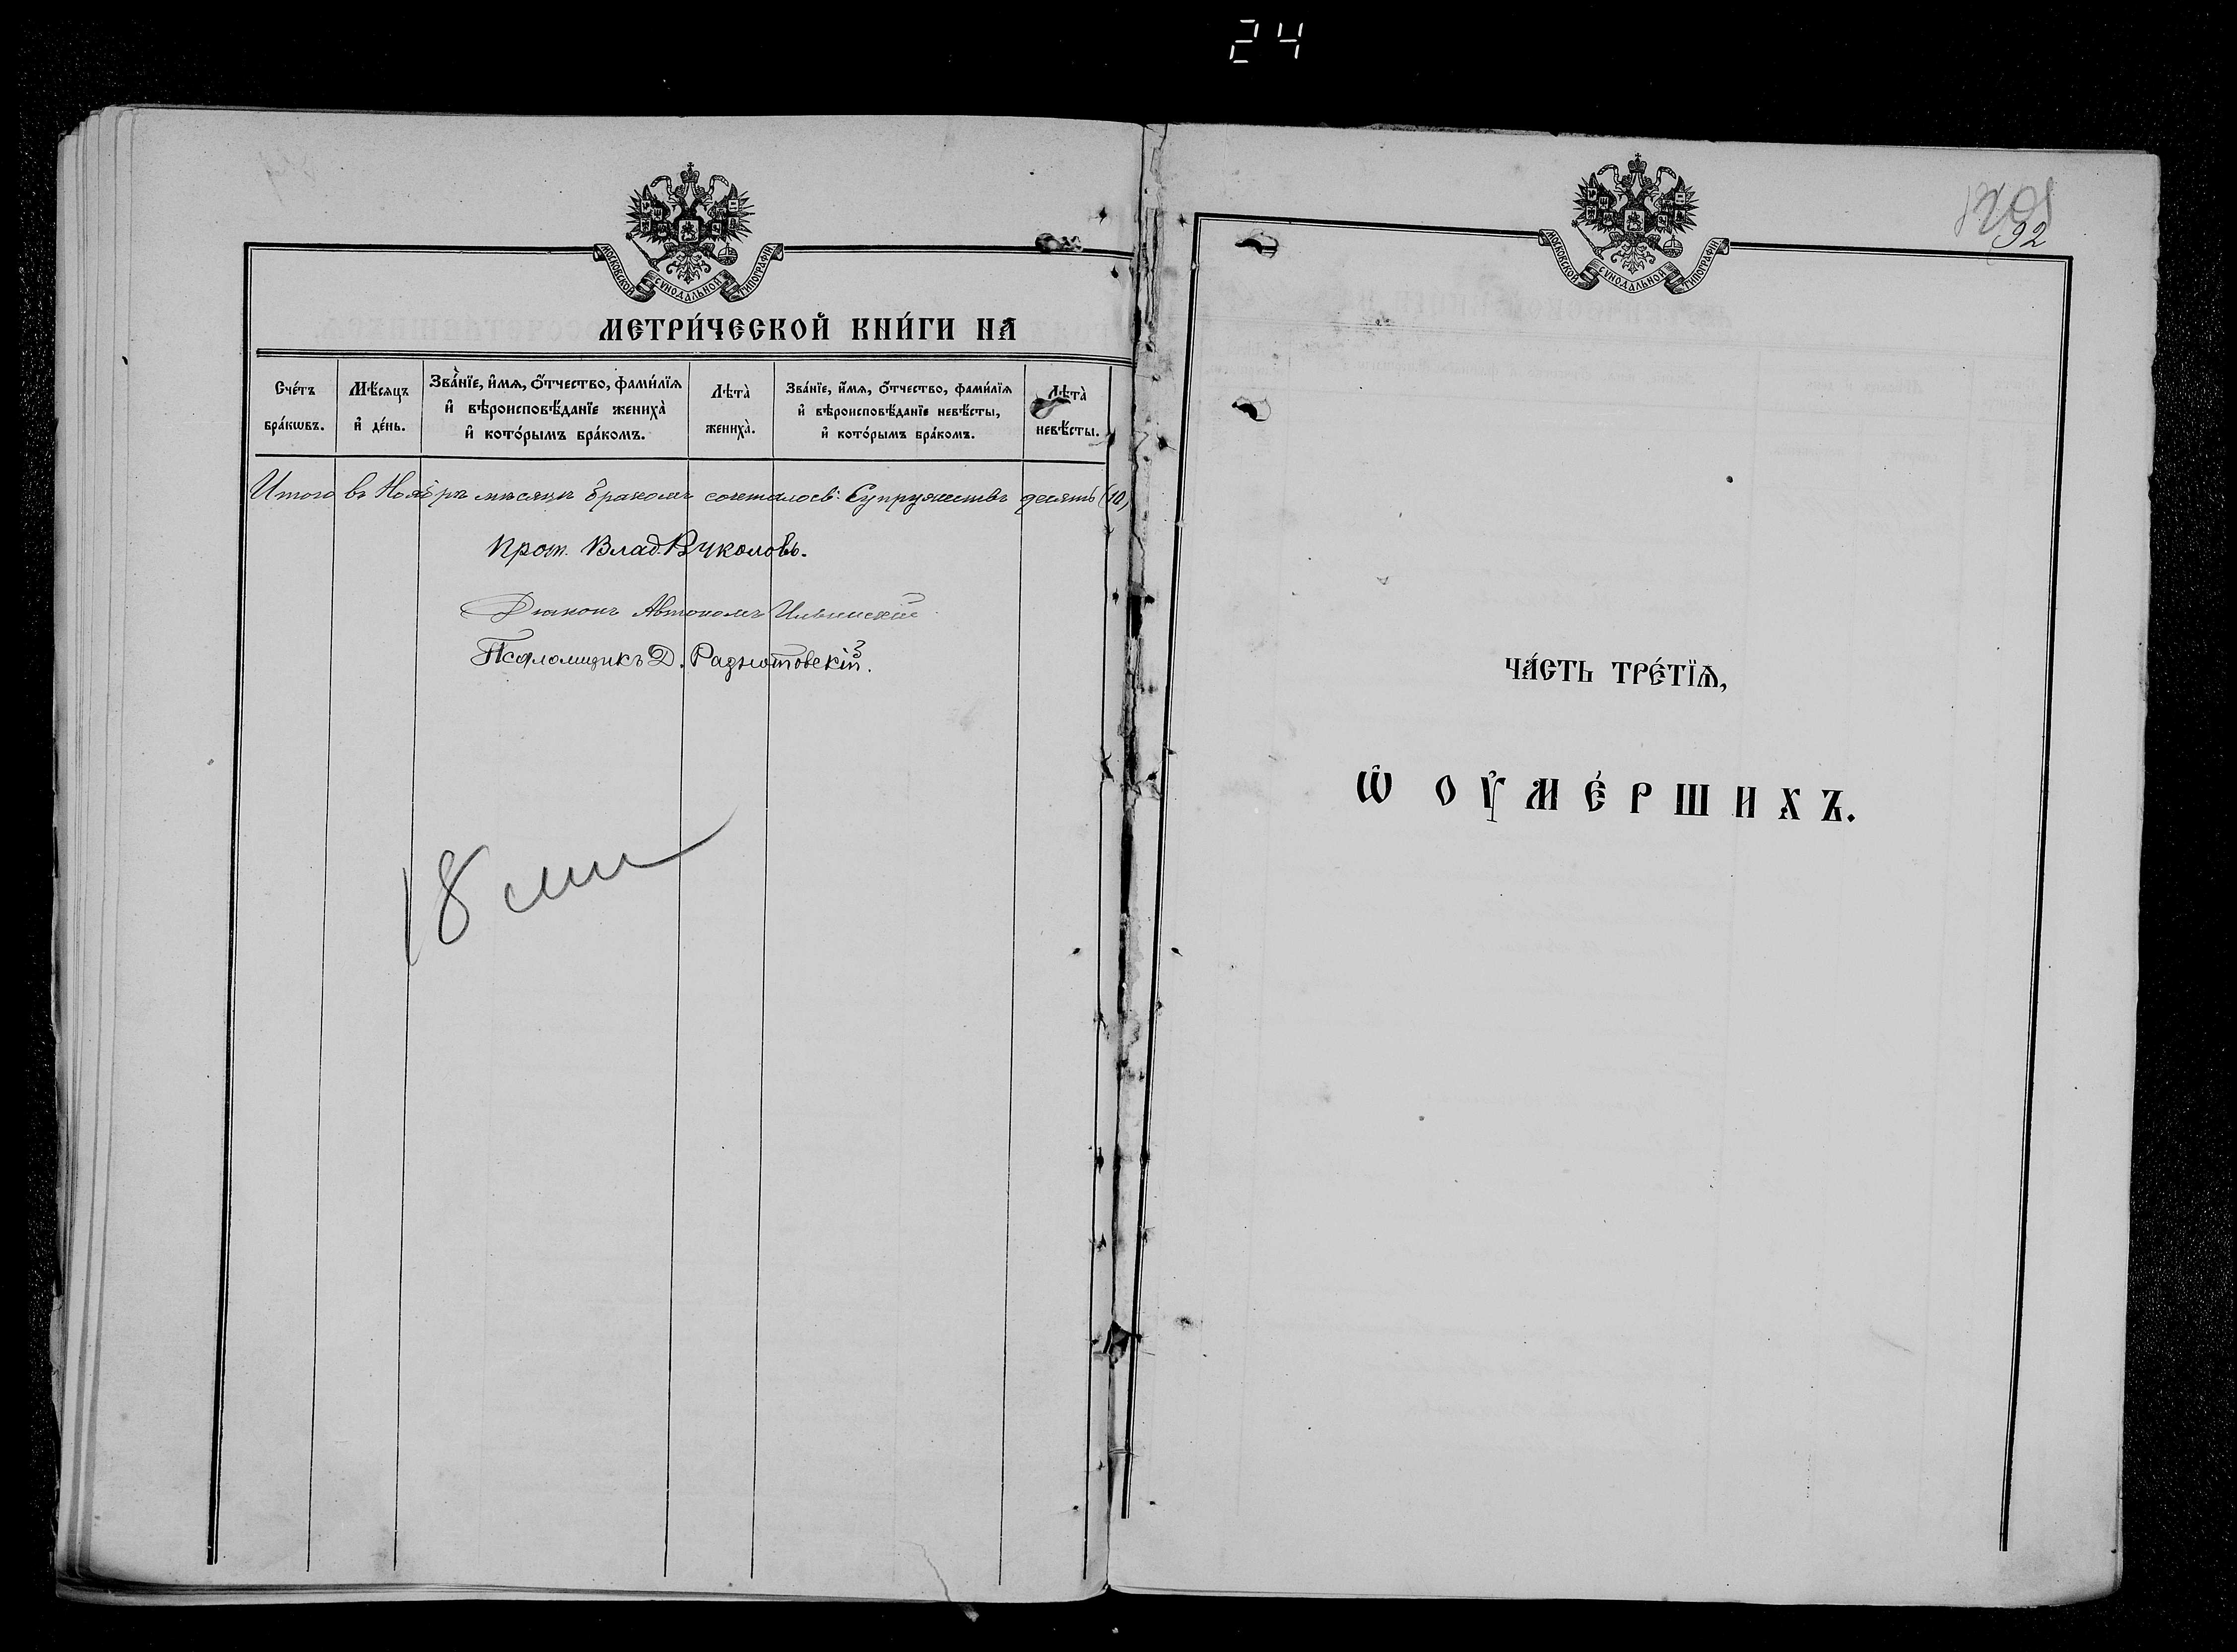 24
МОСКОВСКОЙ СѴНОДАЛЬНОЙ ТИПОГРАФІИ
МЕТРИ́ЧЕСКОЙ КНИ́ГИ НА
Сче́тъ бра́кѡвъ.
Мѣ́сяцъ и҆ де́нь.
Зва́нїе, и҆́мѧ, ѻ҆́тчество, фами́лїѧ
и҆ вѣроисповѣ́данїе жениха̀
и҆ кото́рымъ бра́комъ.
Лѣта̀ жениха̀.
Зва́нїе, и҆́мѧ, ѻ҆́тчество, фами́лїѧ
и҆ вѣроисповѣ́данїе невѣ́сты,
и҆ кото́рымъ бра́комъ.
Лѣта̀ невѣ́сты.
Итого въ Ноябрѣ мѣсяцѣ бракомъ сочеталось: Супружествъ десять (10)
Прот. Влад. Вуколовъ.
Діаконъ Автономъ Ильинскій
Псаломщикъ Д.
18
МОСКОВСКОЙ СѴНОДАЛЬНОЙ ТИПОГРАФІИ
92
ЧА́СТЬ ТРЕ́ТЇѦ,
Ѡ҆ ОУ҆МЕ́РШИХЪ.